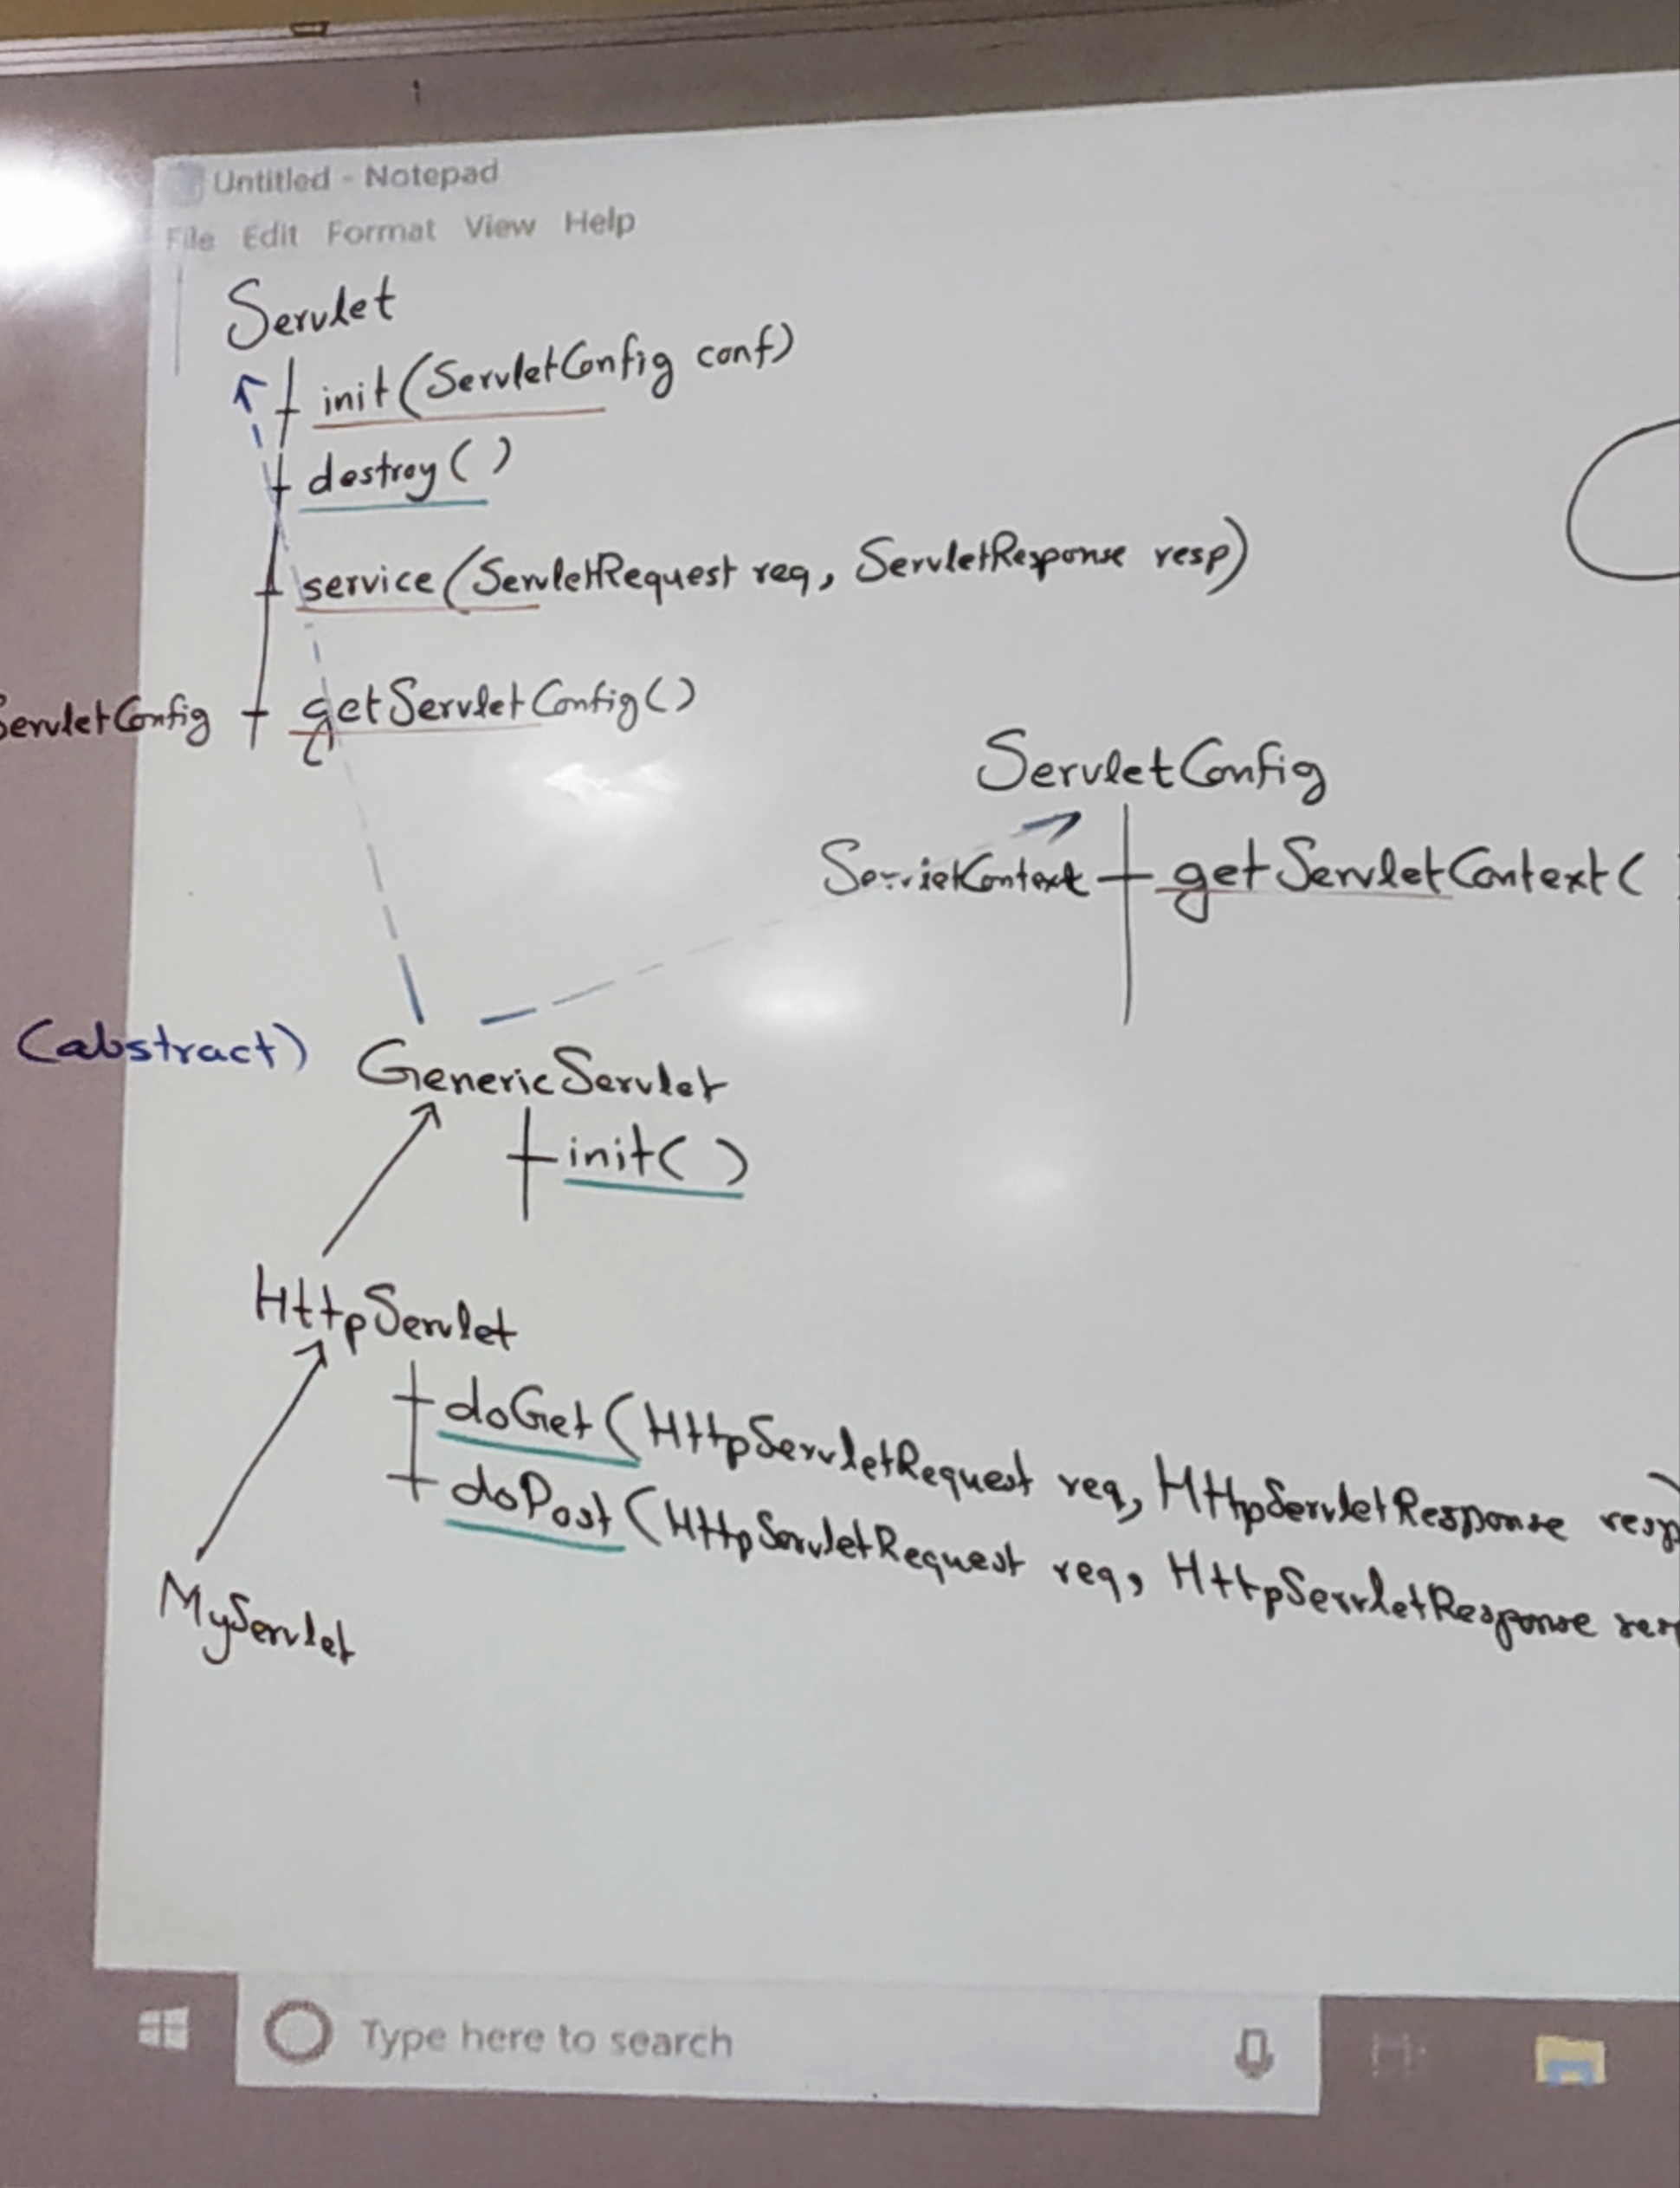 Untitled - Notepad
File Edit Format View Help
Servlet
init(ServletConfig conf)
destroy()
service(ServletRequest req, ServletResponse resp)
ServletConfig getServletConfig()
ServletConfig
ServletContext getServletContext(
(abstract) GenericServlet
init()
HttpServlet
doGet(HttpServletRequest req, HttpServletResponse resp)
doPost(HttpServletRequest req, HttpServletResponse res
MyServlet
Type here to search